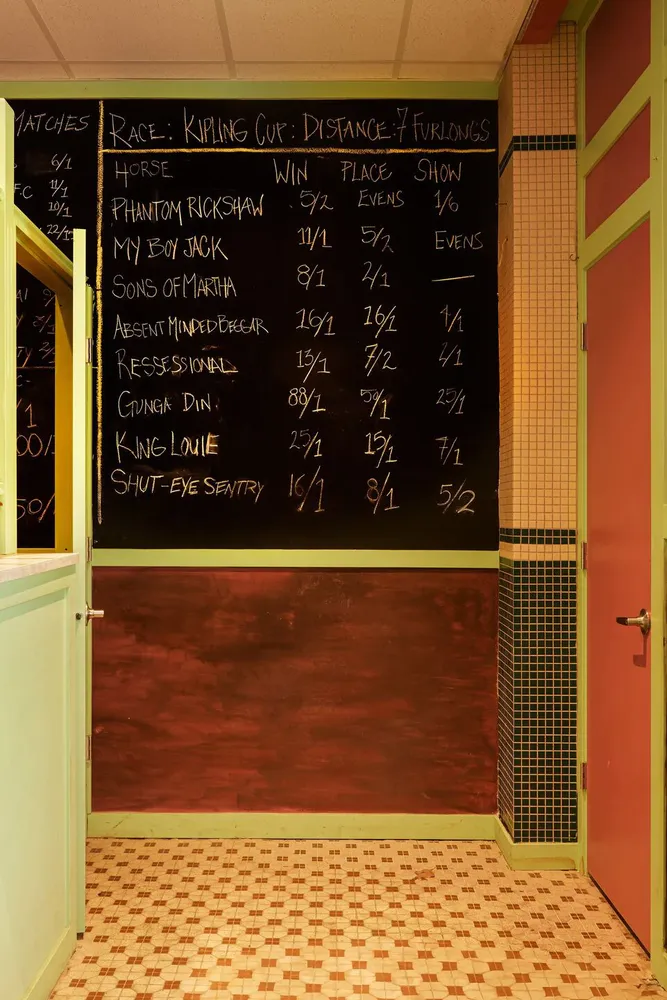 MATCHES
6/1
11/1
10/1
22/1
RACE: KIPLING CUP: DISTANCE: 7 FURLONGS
HORSE WIN PLACE SHOW
PHANTOM RICKSHAW 5/2 EVENS 1/6
MY BOY JACK 11/1 5/2 EVENS
SONS OF MARTHA 8/1 2/1 —
ABSENT MINDED BEGGAR 16/1 16/1 4/1
RESSESSIONAL 13/1 7/2 2/1
GUNGA DIN 88/1 50/1 25/1
KING LOUIE 25/1 15/1 7/1
SHUT-EYE SENTRY 16/1 8/1 5/2